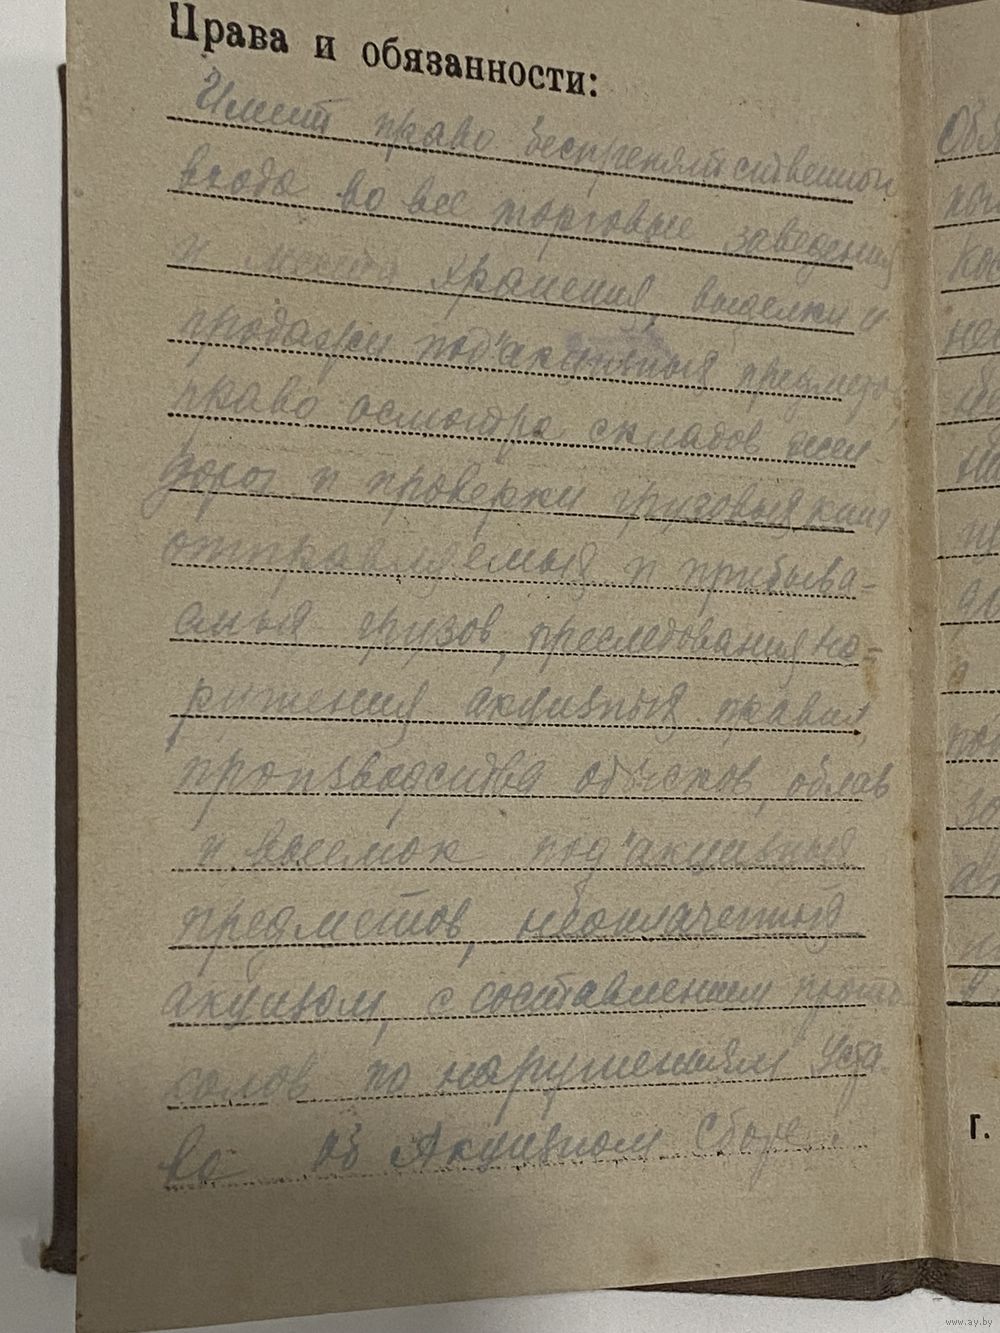 Права и обязанности:
Имеет право беспрепятственного
входа во все торговые заведения
и места хранения, выделки и
продажи под'акцизных предметов,
право осмотра складов жел.
дорог и проверки грузовых книг
отправляемых и прибыва-
емых грузов, преследования на-
рушения акцизных правил,
производства обысков, облав
и выемок под'акцизных
предметов, неоплаченных
акцизом, с составлением прото
колов по нарушениям Уста-
ва об Акцизном Сборе.
Обя
не
г.
www.ay.by